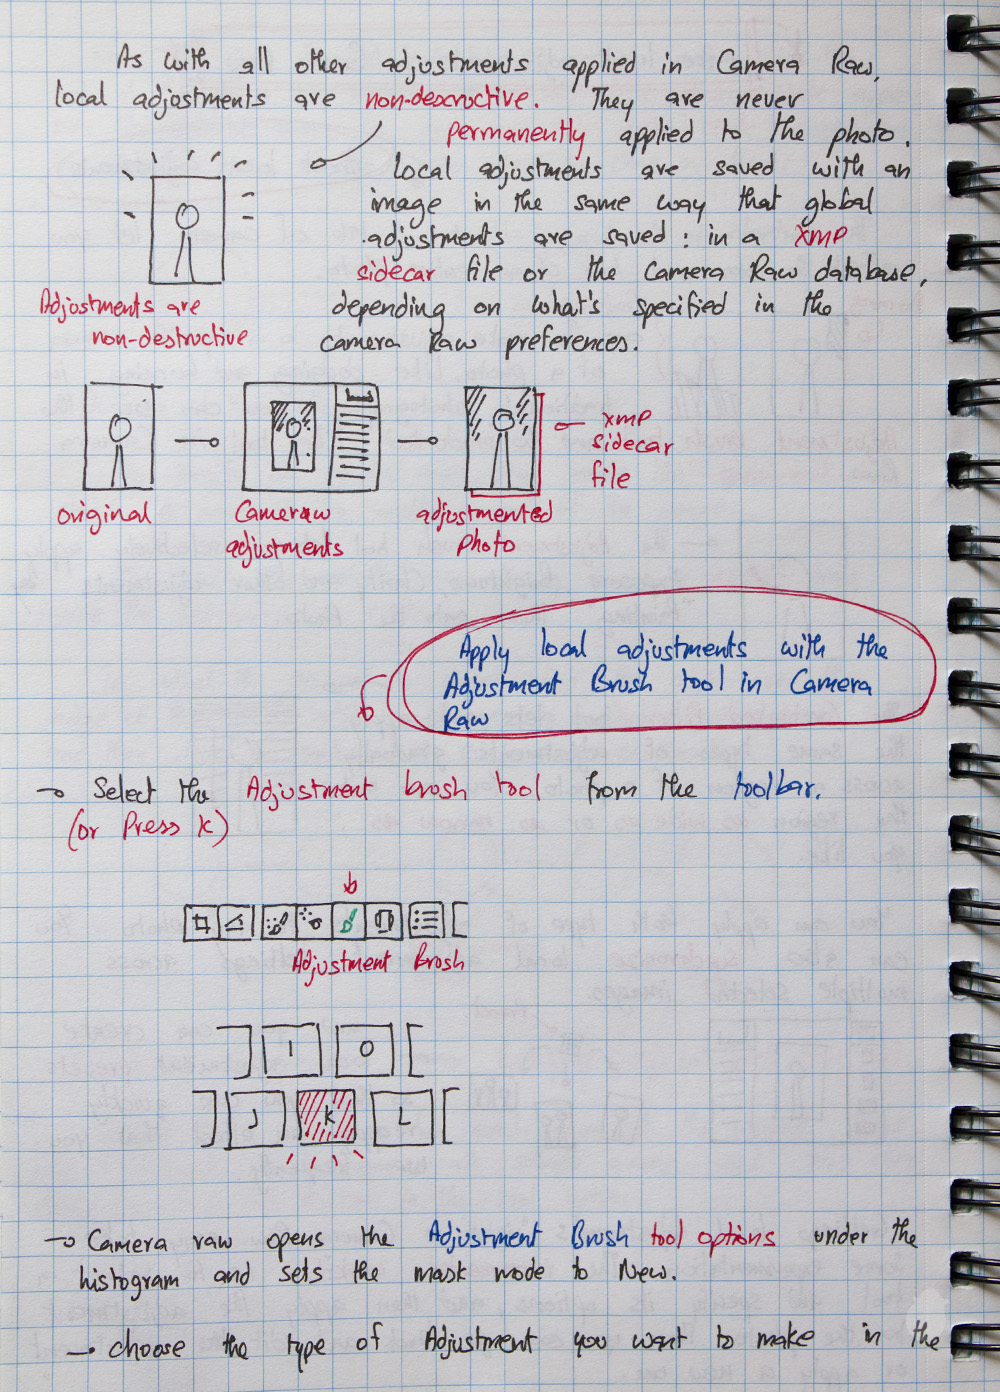 As with all other adjustments applied in Camera Raw,
local adjustments are non-descructive. They are never
permanently applied to the photo.
local adjustments are saved with an
image in the same way that global
adjustments are saved: in a XMP
sidecar file or the Camera Raw database,
depending on what's specified in the
camera Raw preferences.
Adjustments are
non-destructive
XMP
sidecar
file
original
Cameraw
adjustments
adjustmented
photo
Apply local adjustments with the
Adjustment Brush tool in Camera
Raw
Select the Adjustment brush tool from the toolbar.
(or Press K)
Adjustment Brosh
I O
J K L
Camera raw opens the Adjustment Brush tool options under the
histogram and sets the mask mode to New.
choose the type of Adjustment you want to make in the